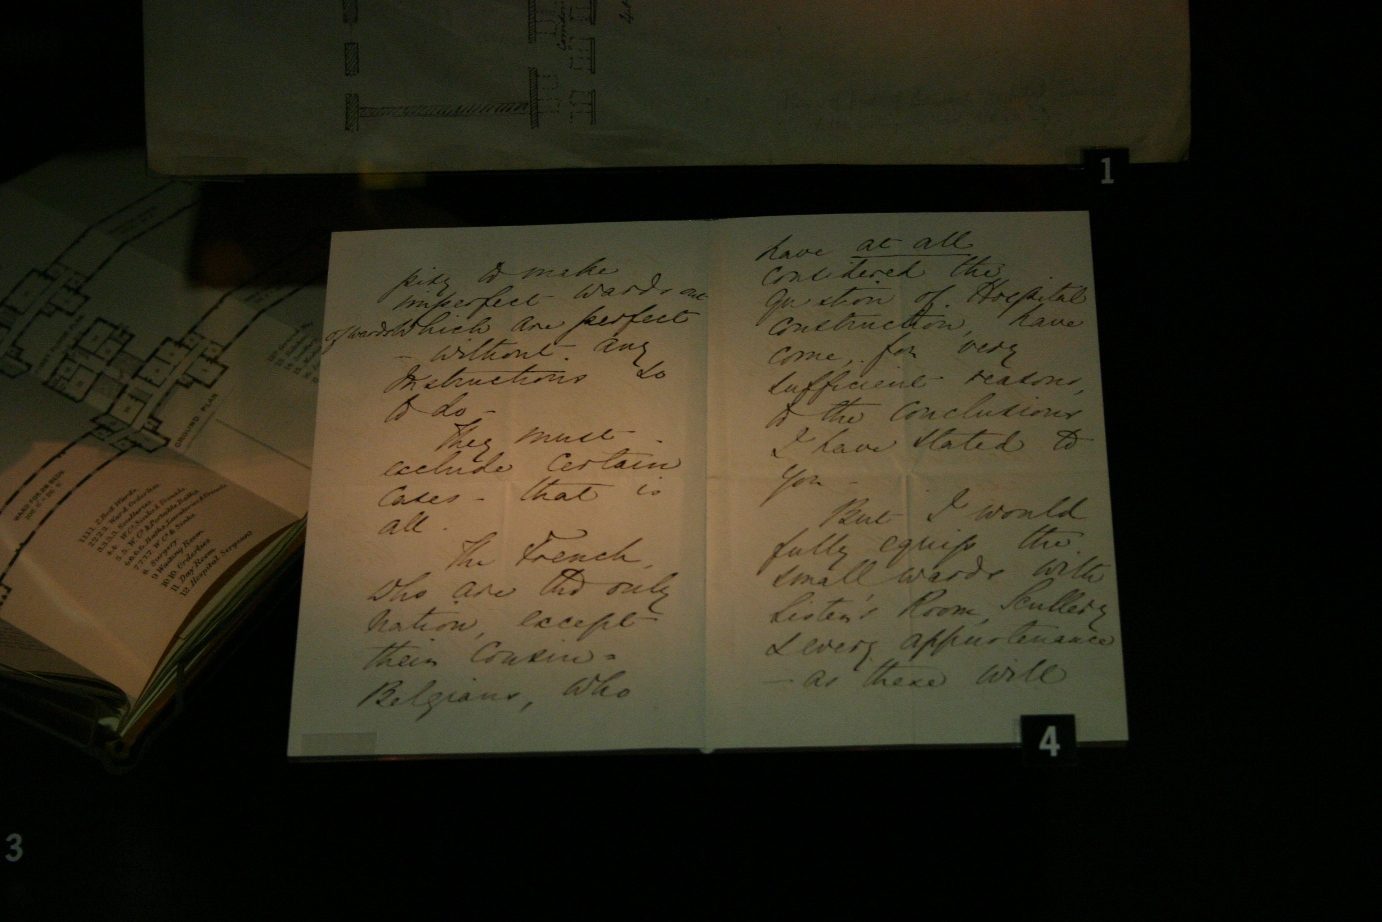 1
pity to make
imperfect wards out
of wards which are perfect
- without any
instructions so
to do -
They must
exclude certain
cases - that is
all.
The French,
who are the only
nation, except
their cousin=
Belgians, who
have at all
considered the
question of Hospital
construction, have
come, for very
sufficient reasons,
to the conclusions
I have stated to
you -
But I would
fully equip the
small wards with
Sister's Room, Scullery
& every appurtenance
- as these will
4
GROUND PLAN
6. Surgery
9. Waiting Room
11. Day Room
12. Hospital Sergeant
3